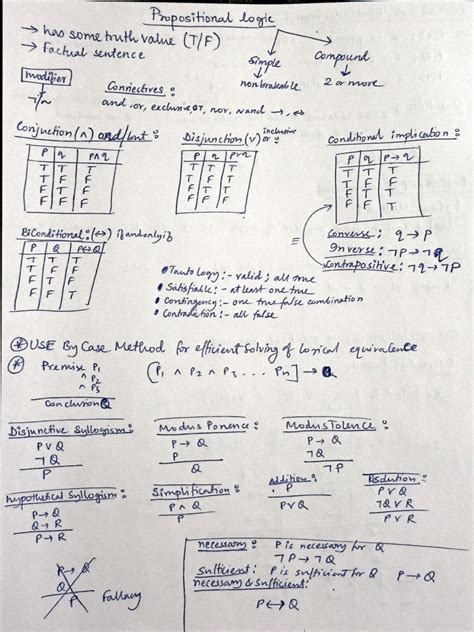 Propositional logic
→ has some truth value (T/F)
→ Factual sentence
Simple
↓
nonbreakable
Compound
↓
2 or more
modifier
↓
¬/~
Connectives :
and, or, exclusive or, nor, nand →, ↔
Conjuction (∧) and/but :
P q P∧q
T T T
T F F
F T F
F F F
Disjunction (∨) inclusive or :
P q P∨q
T T T
T F T
F T T
F F F
Conditional implication :
P q P→q
T T T
T F F
F T T
F F T
BiConditional : (↔) if and only if
P Q P↔Q
T T T
T F F
F T F
F F T
≡
Converse : q→P
Inverse : ¬P→¬q
Contrapositive : ¬q→¬P
• Tautology :- valid ; all true
• Satisfiable :- at least one true
• Contingency :- one true false combination
• Contradiction :- all false
* USE By Case Method for efficient solving of logical equivalente
* Premise P₁
∧ P₂
∧ P₃
Conclusion Q
[P₁ ∧ P₂ ∧ P₃ ... Pn] → Q
Disjunctive Syllogism :
P∨Q
¬Q
P
Modus Ponence :
P→Q
P
Q
Modus Tolence :
P→Q
¬Q
¬P
hypothetical Syllogism :
P→Q
Q→R
P→R
Simplification :
P∧Q
P
Addition :
P
P∨Q
Resolution :
P∨Q
¬Q∨R
P∨R
P→Q
Q
P
Fallacy
necessary : P is necessary for Q
¬P→¬Q
Sufficient : P is sufficient for Q P→Q
necessary & sufficient :
P↔Q